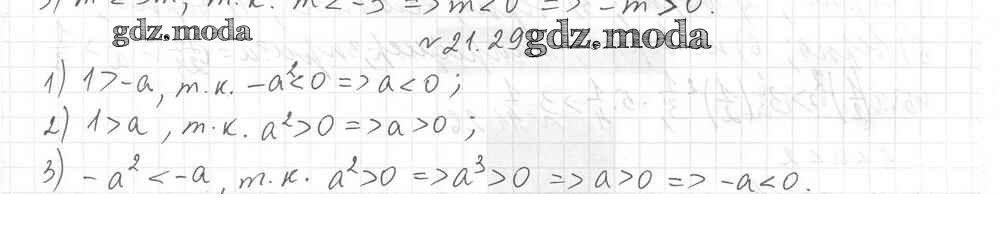 3) m < 3m, т.к. m < -3 => m < 0 => -m > 0.
gdz.moda
№ 21.29 gdz.moda
1) 1 > -a, т.к. -a² < 0 => a < 0;
2) 1 > a, т.к. a² > 0 => a > 0;
3) -a² < -a, т.к. a² > 0 => a³ > 0 => a > 0 => -a < 0.